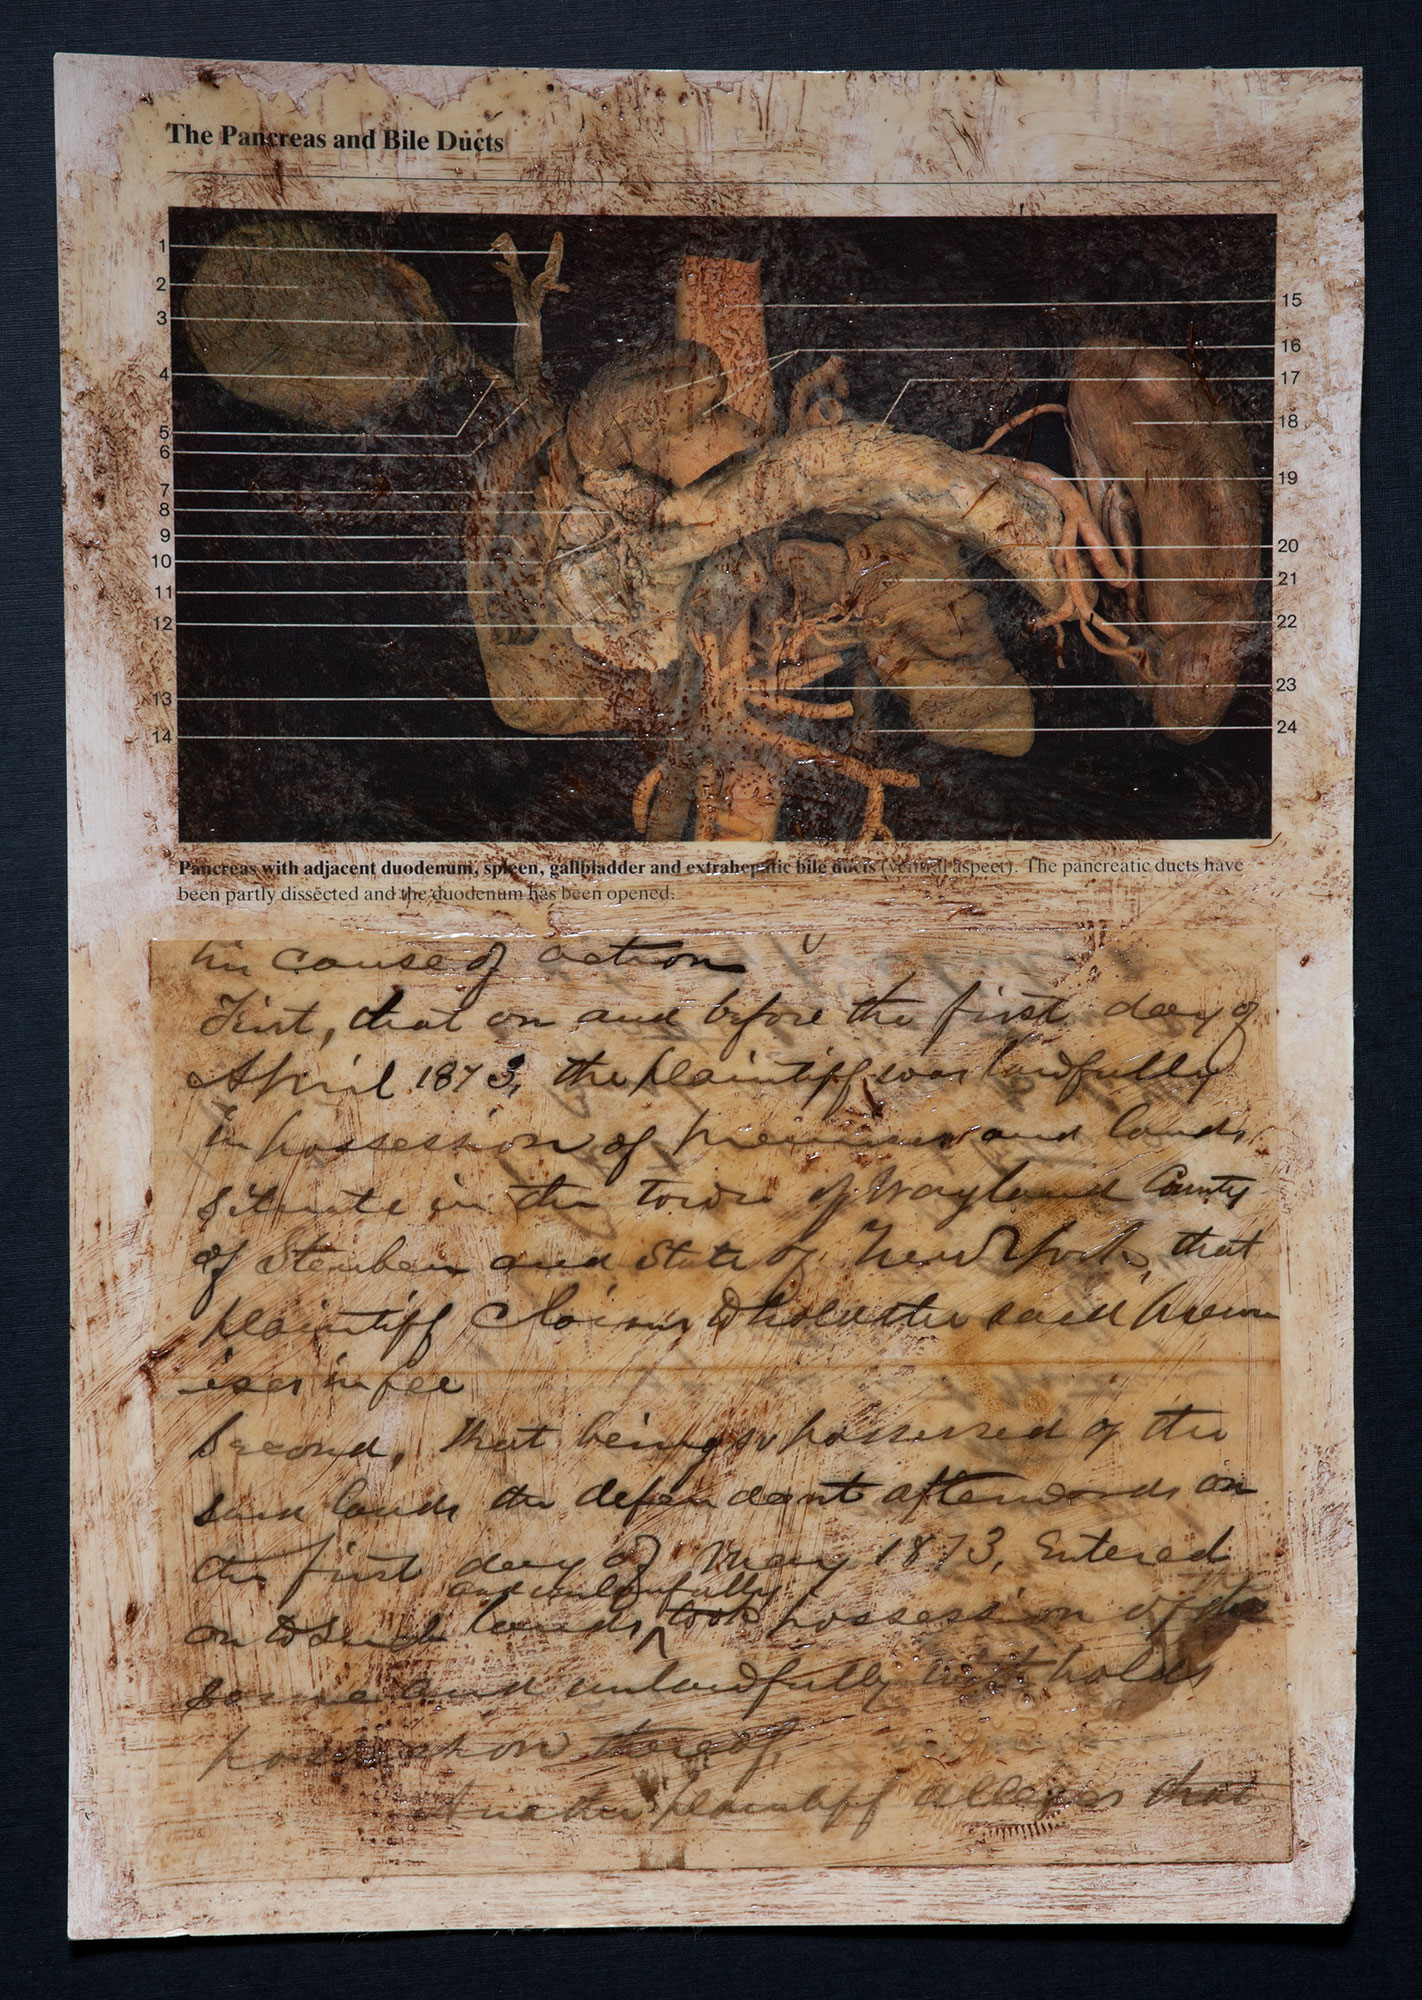 The Pancreas and Bile Ducts
1
2
3
4
5
6
7
8
9
10
11
12
13
14
15
16
17
18
19
20
21
22
23
24
Pancreas with adjacent duodenum, spleen, gallbladder and extrahepatic bile ducts (ventral aspect). The pancreatic ducts have
been partly dissected and the duodenum has been opened.
his cause of action
First, that on and before the first day of
April 1873, the plaintiff was lawfully
in possession of premises and lands,
situate in the town of Wayland County
of Steuben and State of New York, that
plaintiff claims to hold the said prem
ises in fee
Second, That being so possessed of the
said lands the defendant afterwards on
the first day of May 1873, Entered
and unlawfully
on to said lands ^ took possession of the
same and unlawfully withholds
possession thereof,
plaintiff alleges that